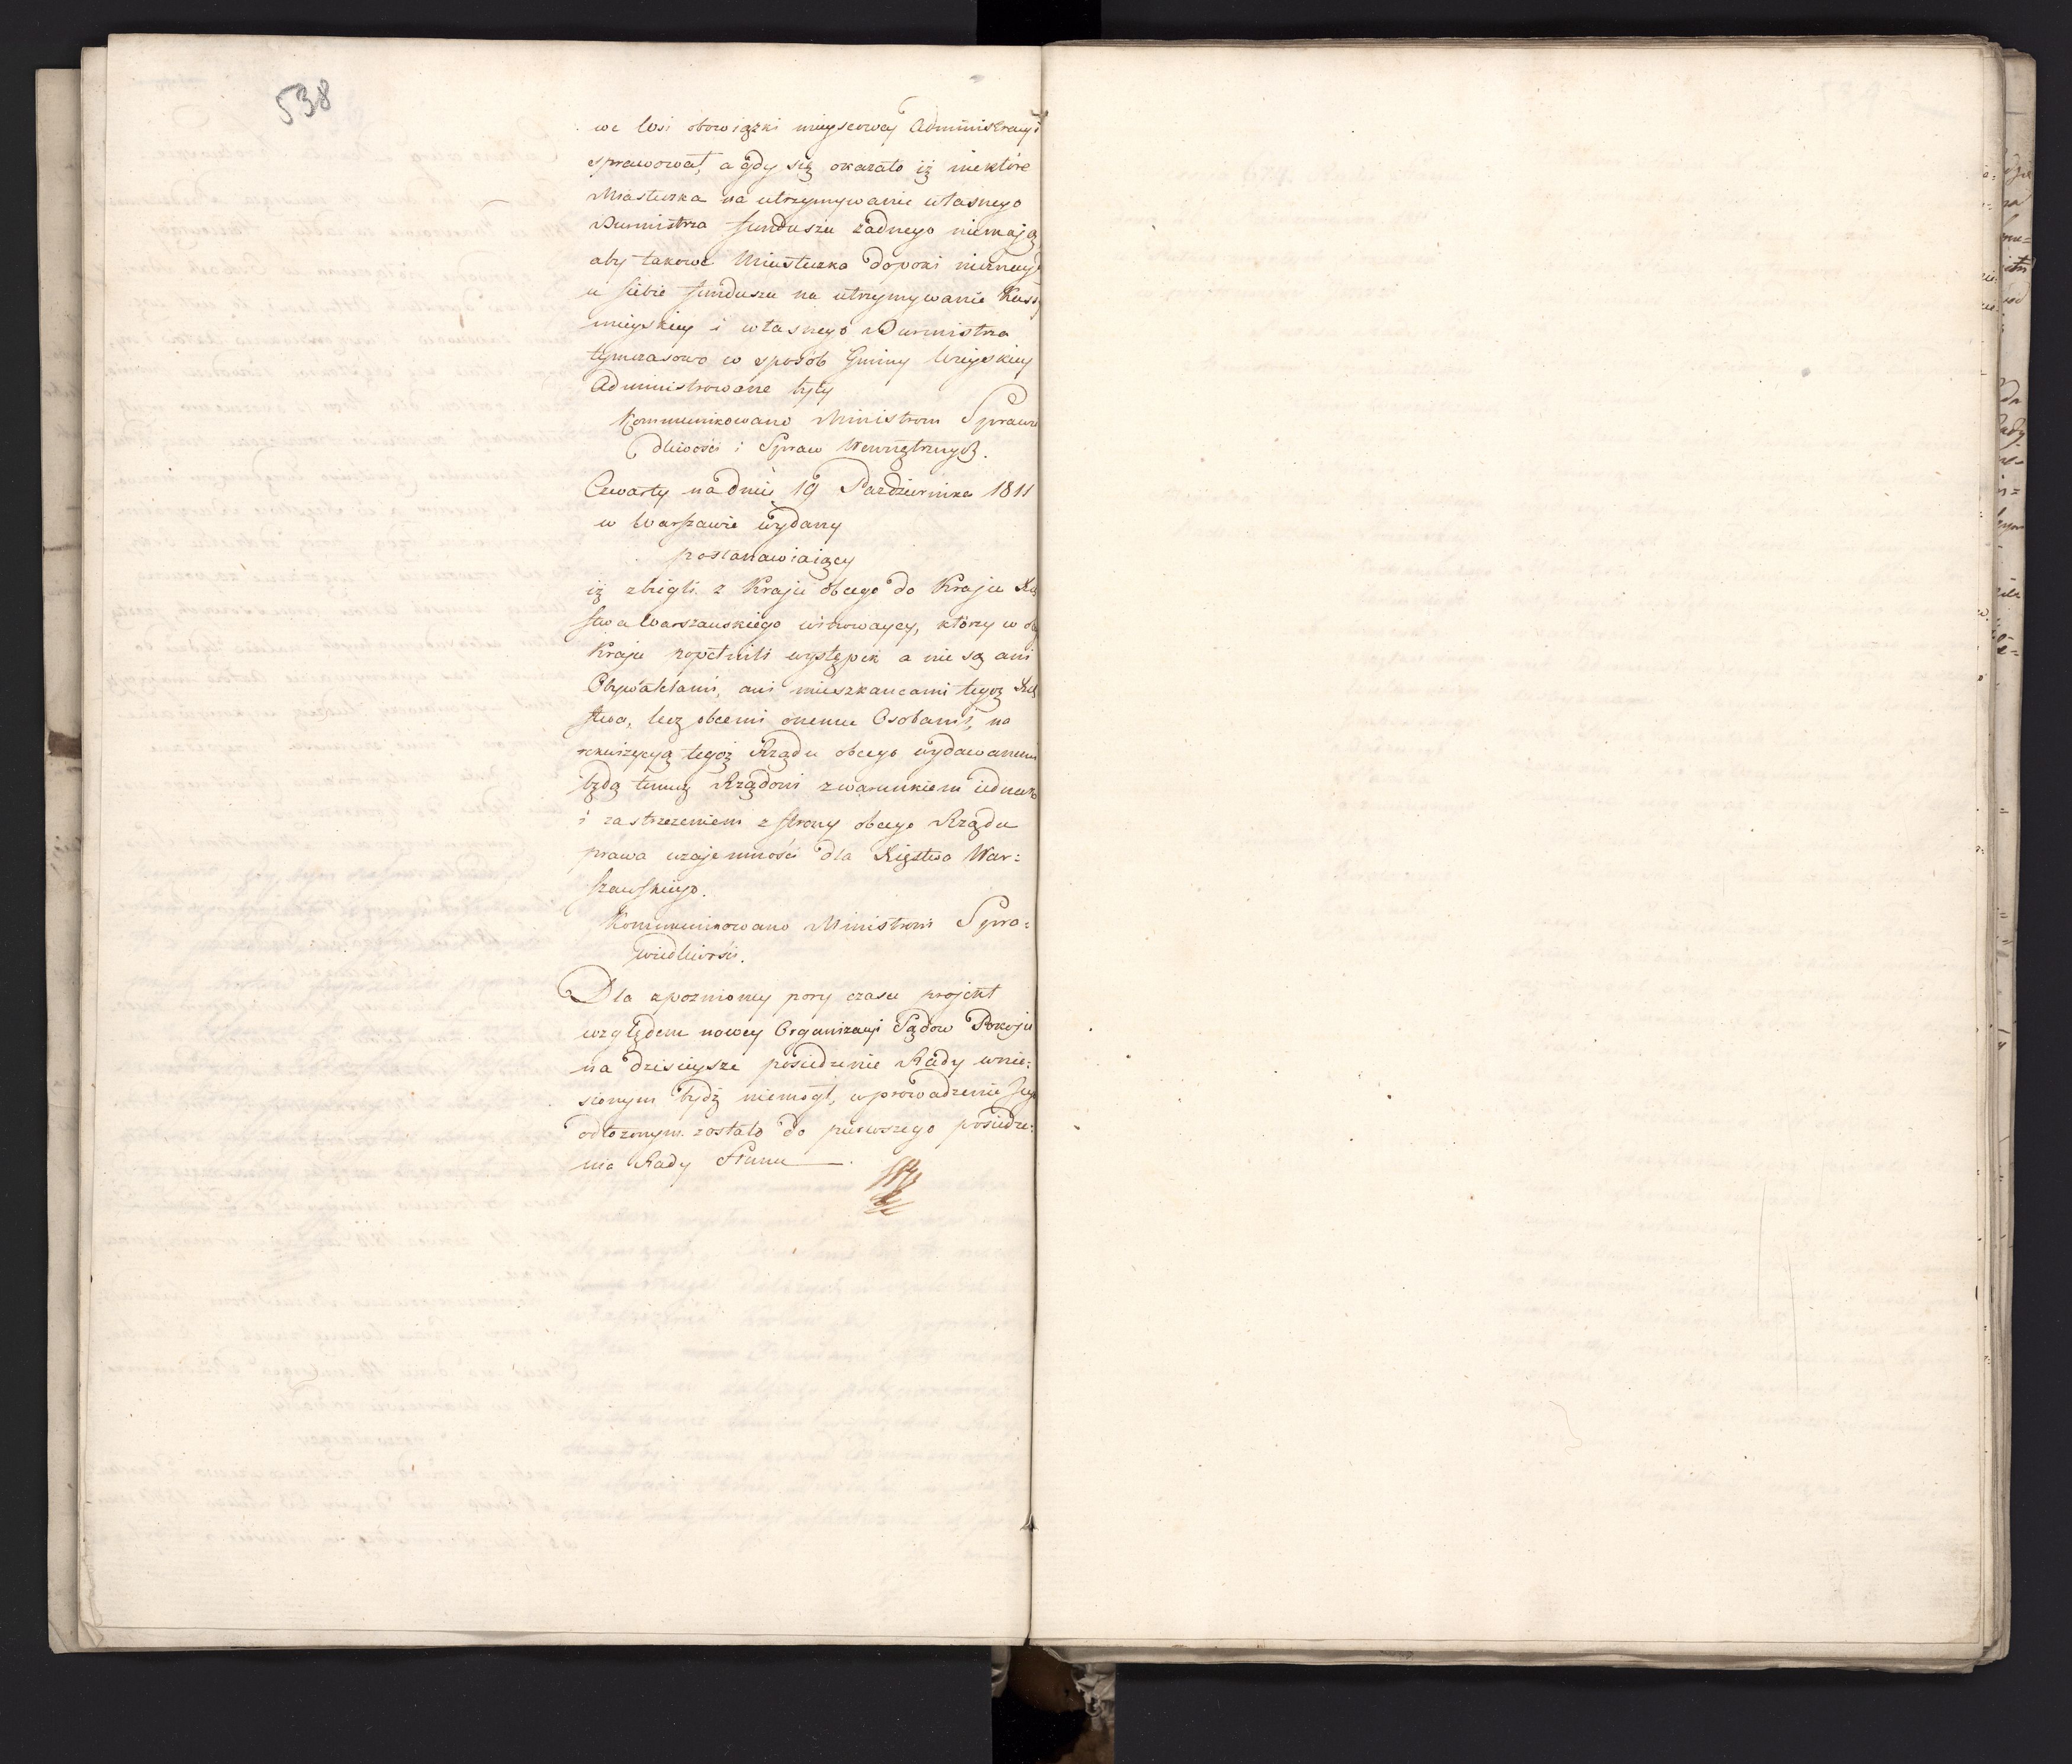 538
we Wsi obowiązki mieyscowey Administracyi
sprawował, a gdy się okazało iż niektóre
Miasteczka na utrzymywanie własnego
Burmistrza funduszu żadnego niemają
aby takowe Miasteczka dopoki
u siebie funduszu na utrzymywanie Kassy
mieyskiey i własnego Burmistrza
tymczasowo w sposób Gminy Wieyskiey
Administrowane były
Kommunikowano Ministrom Sprawie
dliwości i Spraw Wewnętrznych.
Czwarty na dniu 19 Pazdziernika 1811
w Warszawie wydany
postanawiaiący
iż zbiegli z Kraju obcego do Kraju
stwa Warszawskiego winowaycy, którzy w
Kraju popełnili występek a nie są ani
Obywatelami, ani mieszkancami tegoż
stwa, lecz obcemi onemu Osobami, na
rekwizycyą tegoż Rządu obcego wydawanemi
będą temuż Rządowi z warunkiem iednak
i zastrzeżeniem z strony obcego Rządu
prawa wzajemności dla Xięstwa War:
szawskiego.
Kommunikowano Ministrowi Spra:
wiedliwości.
Dla zpoznioney pory czasu projekt
względem nowey Organizacyi Sądow Pokoju
na dzisieysze posiedzenie Rady wnie:
sionym bydź niemógł, wprowadzenie Jego
odłożonym zostało do pierwszego posiedze:
nia Rady Stanu